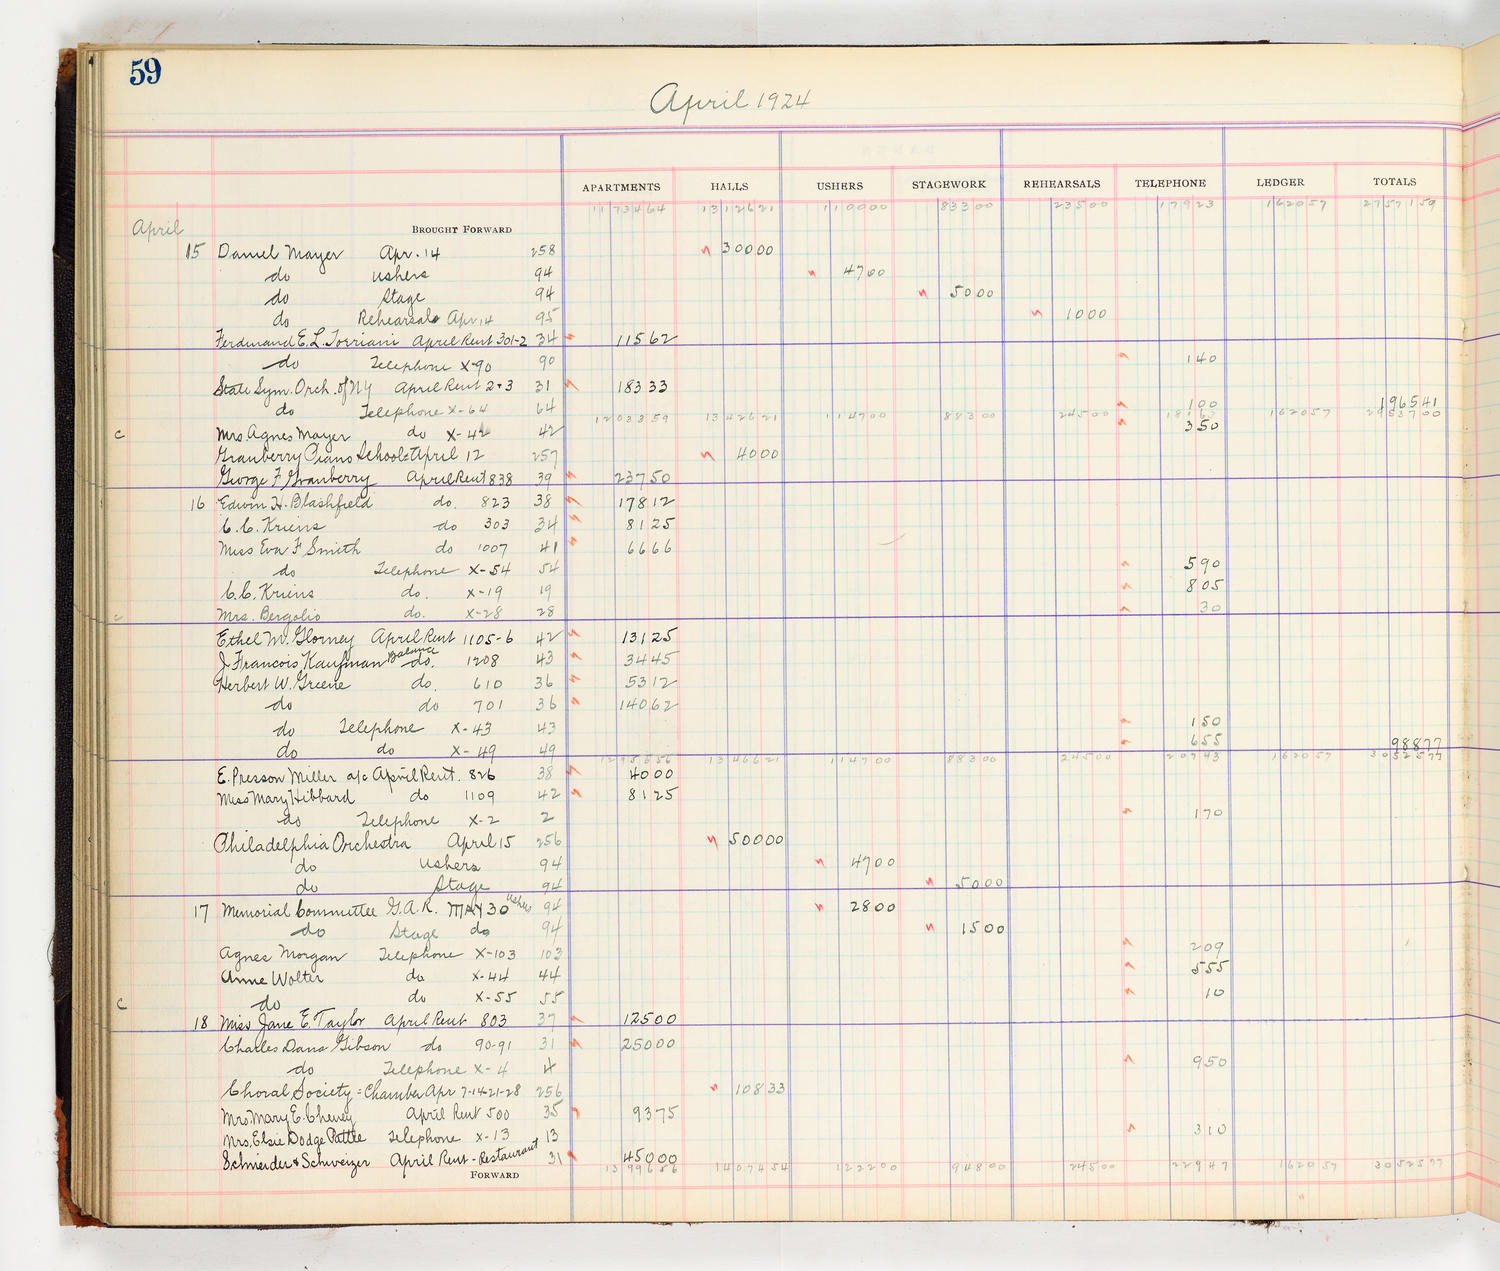 59
April 1924
APARTMENTS HALLS USHERS STAGEWORK REHEARSALS TELEPHONE LEDGER TOTALS
1173464 1312621 110000 83300 23500 17923 162057 2757159
April BROUGHT FORWARD
15 Daniel Mayer Apr. 14 258 30000
do ushers 94 4700
do Stage 94 5000
do Rehearsals Apr 14 95 1000
Ferdinand E. L. Torriani April Rent 301-2 34 11562
do Telephone X-90 90 140
State Sym. Orch. of NY April Rent 2+3 31 18333
do Telephone X-64 64 100 196541
1203359 1342621 114700 88300 24500 162057 2953700
c Mrs. Agnes Mayer do X-42 42 350
Granberry Piano School = April 12 257 4000
George F Granberry April Rent 838 39 23750
16 Edwin H. Blashfield do. 823 38 17812
C. C. Kriens do 303 34 8125
Miss Eva F Smith do 1007 41 6666
do Telephone X-54 54 590
C. C. Kriens do. X-19 19 805
c Mrs. Bergolio do. X-28 28 30
Ethel M. Glorney April Rent 1105-6 42 13125
J Francois Kaufman balance do. 1208 43 3445
Herbert W. Greene do. 610 36 5312
do do 701 36 14062
do Telephone X-43 43 150
do do X-49 49 655 98877
1295656 1346621 114700 88300 24500 20743 162057 3052577
E. Presson Miller a/c April Rent. 826 38 4000
Miss Mary Hibbard do 1109 42 8125
do Telephone X-2 2 170
Philadelphia Orchestra April 15 256 50000
do ushers 94 4700
do Stage 94 5000
17 Memorial Committee G.A.R. MAY 30 ushers 94 2800
do Stage do 94 1500
Agnes Morgan Telephone X-103 103 209
Anne Wolter do X-44 44 555
c do do X-55 55 10
18 Miss Jane E. Taylor April Rent 803 37 12500
Charles Dana Gibson do 90-91 31 25000
do Telephone X-4 4 950
Choral Society = Chamber Apr 7-14-21-28 256 10833
Mrs. Mary E. Cheney April Rent 500 35 9375
Mrs. Elsie Dodge Pattee Telephone X-13 13 310
Schneider & Schweizer April Rent - Restaurant 31 45000
FORWARD 1399656 1407454 122200 94800 24500 22947 162057 3052577